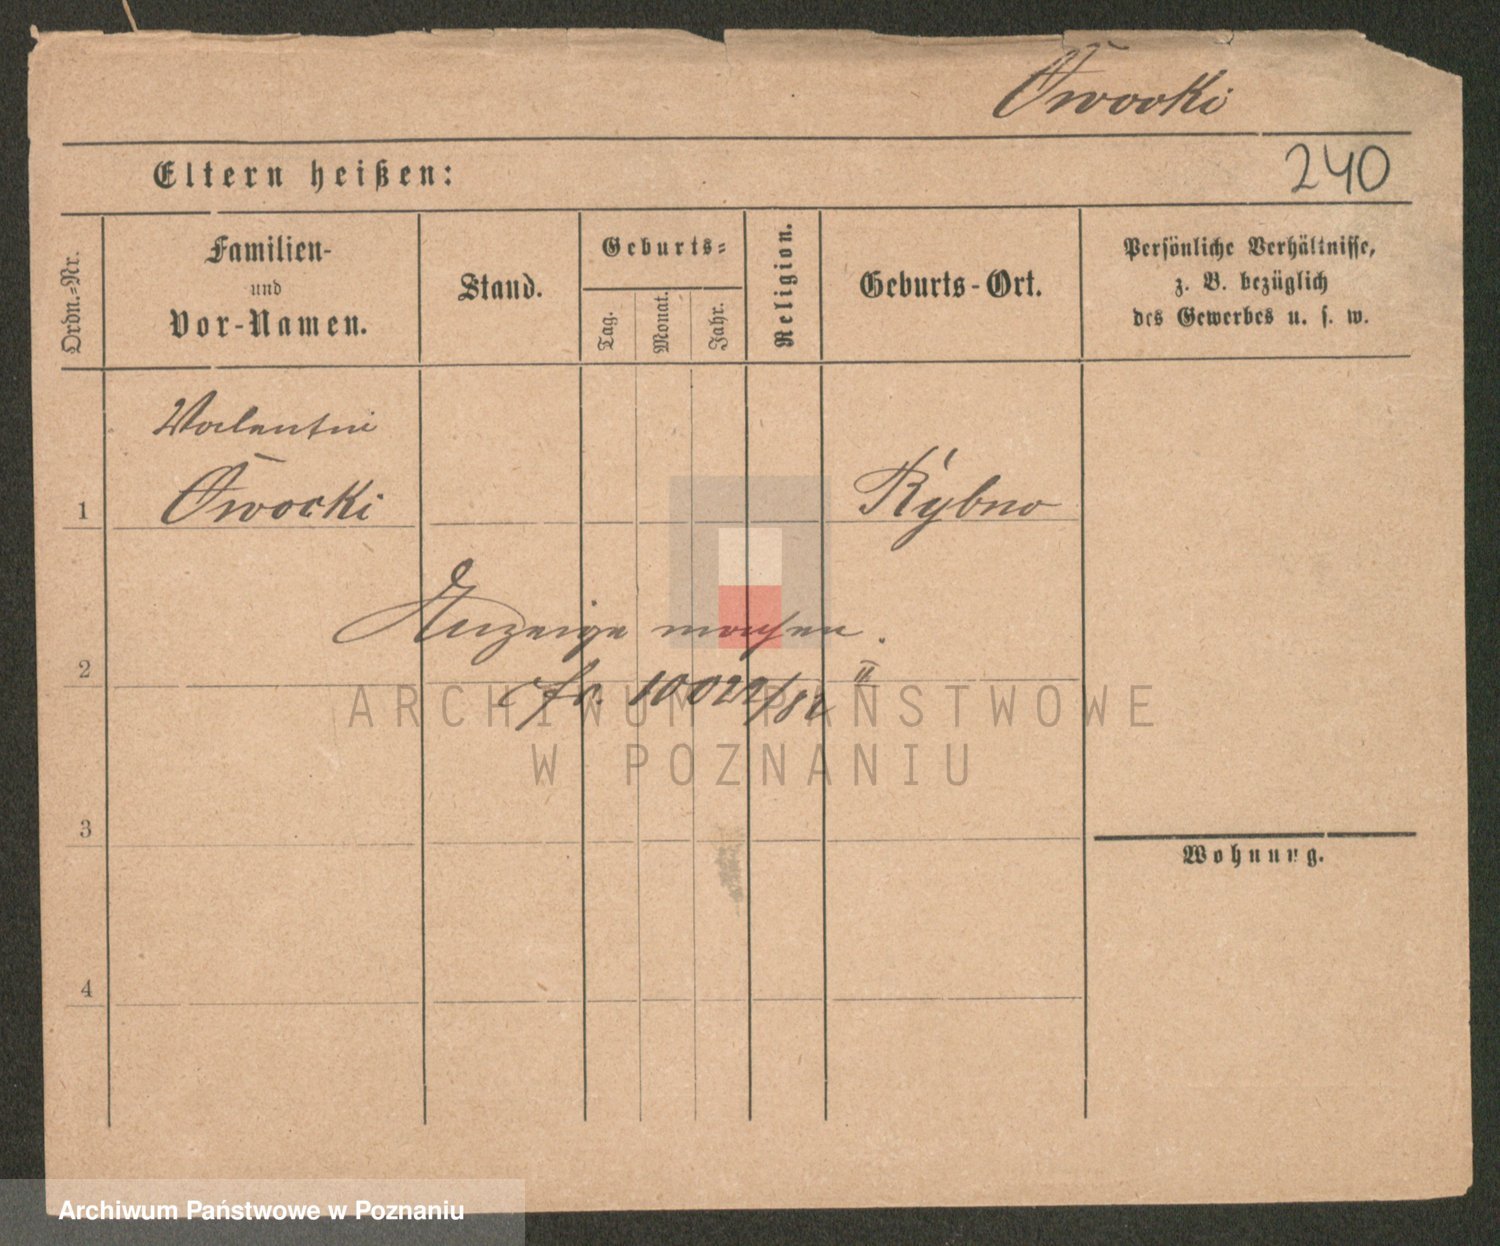 Owocki
240
Eltern heißen:
Ordn.-Nr.
Familien-
und
Vor-Namen.
Stand.
Geburts-
Tag.
Monat.
Jahr.
Religion.
Geburts-Ort.
Persönliche Verhältnisse,
z. B. bezüglich
des Gewerbes u. s. w.
Valentin
1 Owocki Rybno
Anzeige machen.
2
cfr. 10022/82 II
ARCHIWUM PAŃSTWOWE
W POZNANIU
3
Wohnung.
4
Archiwum Państwowe w Poznaniu